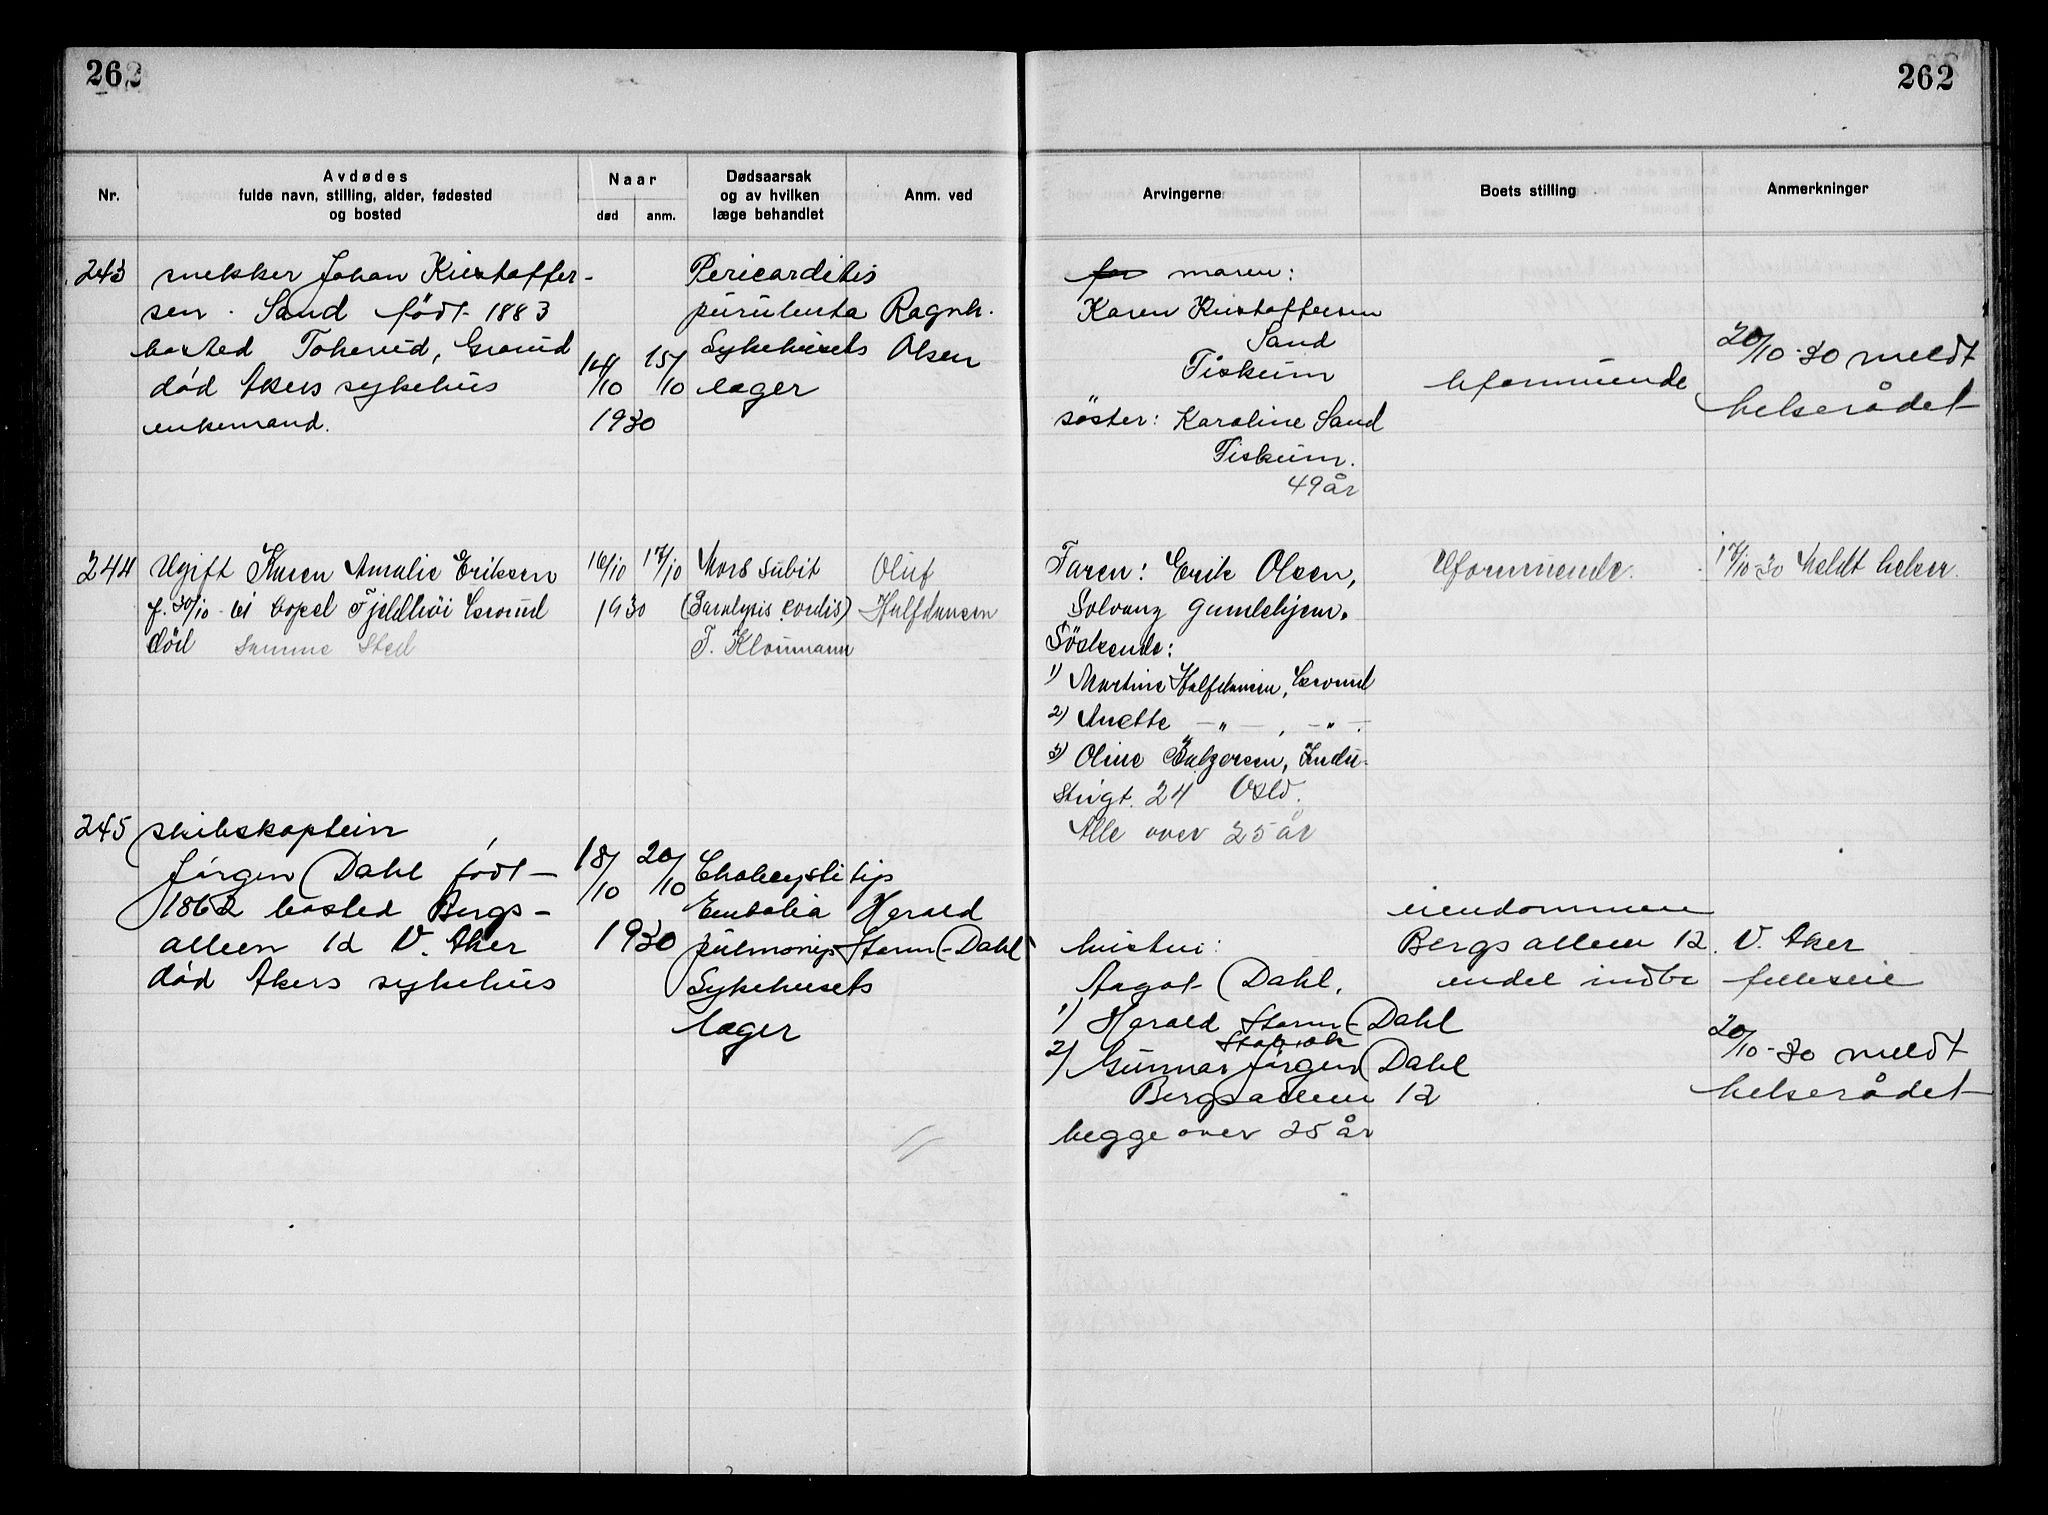 262
262
Nr.
Avdødes
fulde navn, stilling, alder, fødested
og bosted
Naar
død
anm.
Dødsaarsak
og av hvilken
læge behandlet
Anm. ved
Arvingerne
Boets stilling
Anmerkninger
243
snekker Johan Kristoffer-
sen Sand født 1883
bosted Tokerud, Grorud
død Akers sykehus
enkemand.
14/10 15/10
1930
Pericarditis
purulenta
Sykehusets
læger
Ragnh.
Olsen
far moren:
Karen Kristoffersen
Sand
Fiskum
søster: Karoline Sand
Fiskum.
49 år
Uformuende
20/10-30 meldt
helserådet
244
Ugift Karen Amalie Eriksen
f. 30/10-61 Fjeldhöi Grorud
död samme sted
16/10 17/10
1930
Mors subit
(Paralysis cordis)
F. Kloumann
Oluf
Halfdansen
Faren: Erik Olsen,
Solvang gamlehjem.
Söskende:
1) Martine Halfdansen, Grorud
2) Anette -"-, -"-.
3) Oline Indu-
strigt. 24 Oslo.
Alle over 25 år
Uformuende.
17/10-30 Meldt helser.
245
skibskaptein
Jørgen Dahl født
1862 bosted Bergs-
alleen 12 V. Aker
død Akers sykehus
18/10 20/10
1930
Cholecystitis
Embolia
pulmonis
Sykehusets
læger
Harald
Storm-Dahl
hustru:
Aagot Dahl.
1) Harald Storm-Dahl
2) Gunnar Jørgen Dahl
Bergsalleen 12
begge over 25 år
eiendommen
Bergsalleen 12. V. Aker
endel indbo
felleseie
20/10-30 meldt
helserådet